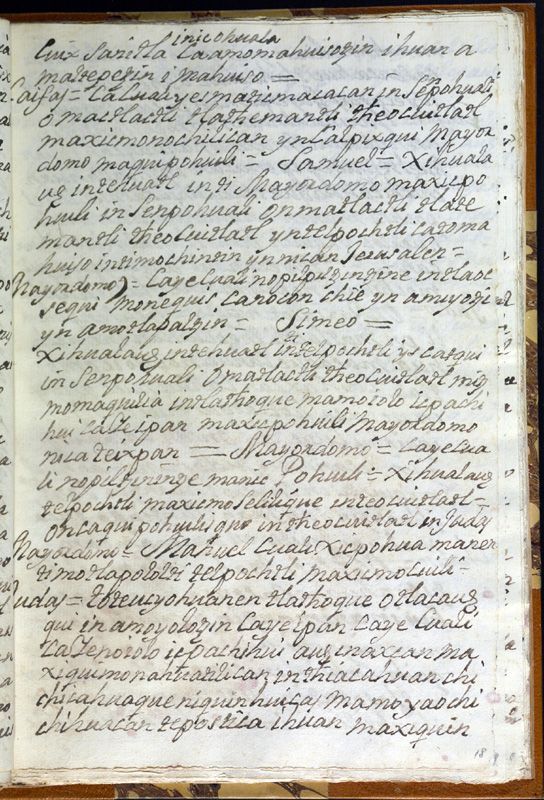 inic ohuala
Cuix Santla Ca amo mahuisozin ihuan a
matepezin i mahuiso =
Caifas = Ca Cuali yes maticmacacan in Senpohuali
omactlactli tlathemantli theocuitlatl
maxicmonochilican yn Calpixqui Mayor
domo maquipohuili = Samuel = Xihuala
uq intehuatl in ti Mayordomo maxicpo
huili in Senpohuali onmatlactli tlate
mantli theocuitlatl yn telpochtli ca toma
huiso in timochintin yn nican Jerusalen =
Mayordomo) = Caye Cuali nopiltzinzine in tlaoc
sequi monequis ca nocon chie yn amiyozi
yn amotlapalzin = Simeo =
Xihualauq intehuatl in telpochtli ys catqui
in Senpohuali Omatlactli theocuitlatl mi
momaquilia in tlathoque mamotolo icpachi
hui ca teixpan maxicpohuili Mayordomo
nica teixpan = Mayordomo = Caye Cua
li nopiltzinzine manic Pohuili = Xihualauq
telpochtli maximoselilique in teocuitlatl =
Oncaquipohuilisque in theocuitlatl in Judas
Mayordomo = Manuel Cuali xicpohua manen
timotlapololti telpochtli maxicmocuili =
Judas = toteucyohuanen tlathoque Otlacauq
qui in amoyolozin Cayeipan Caye Cuali
Ca Zenotolo icpachihui auq inaxcan ma
xiquimonahuatilican in thiacahuan chi
chicahuaque niquinhuicas mamoyaochi
chihuacan tepostica ihuan maxiquin
18